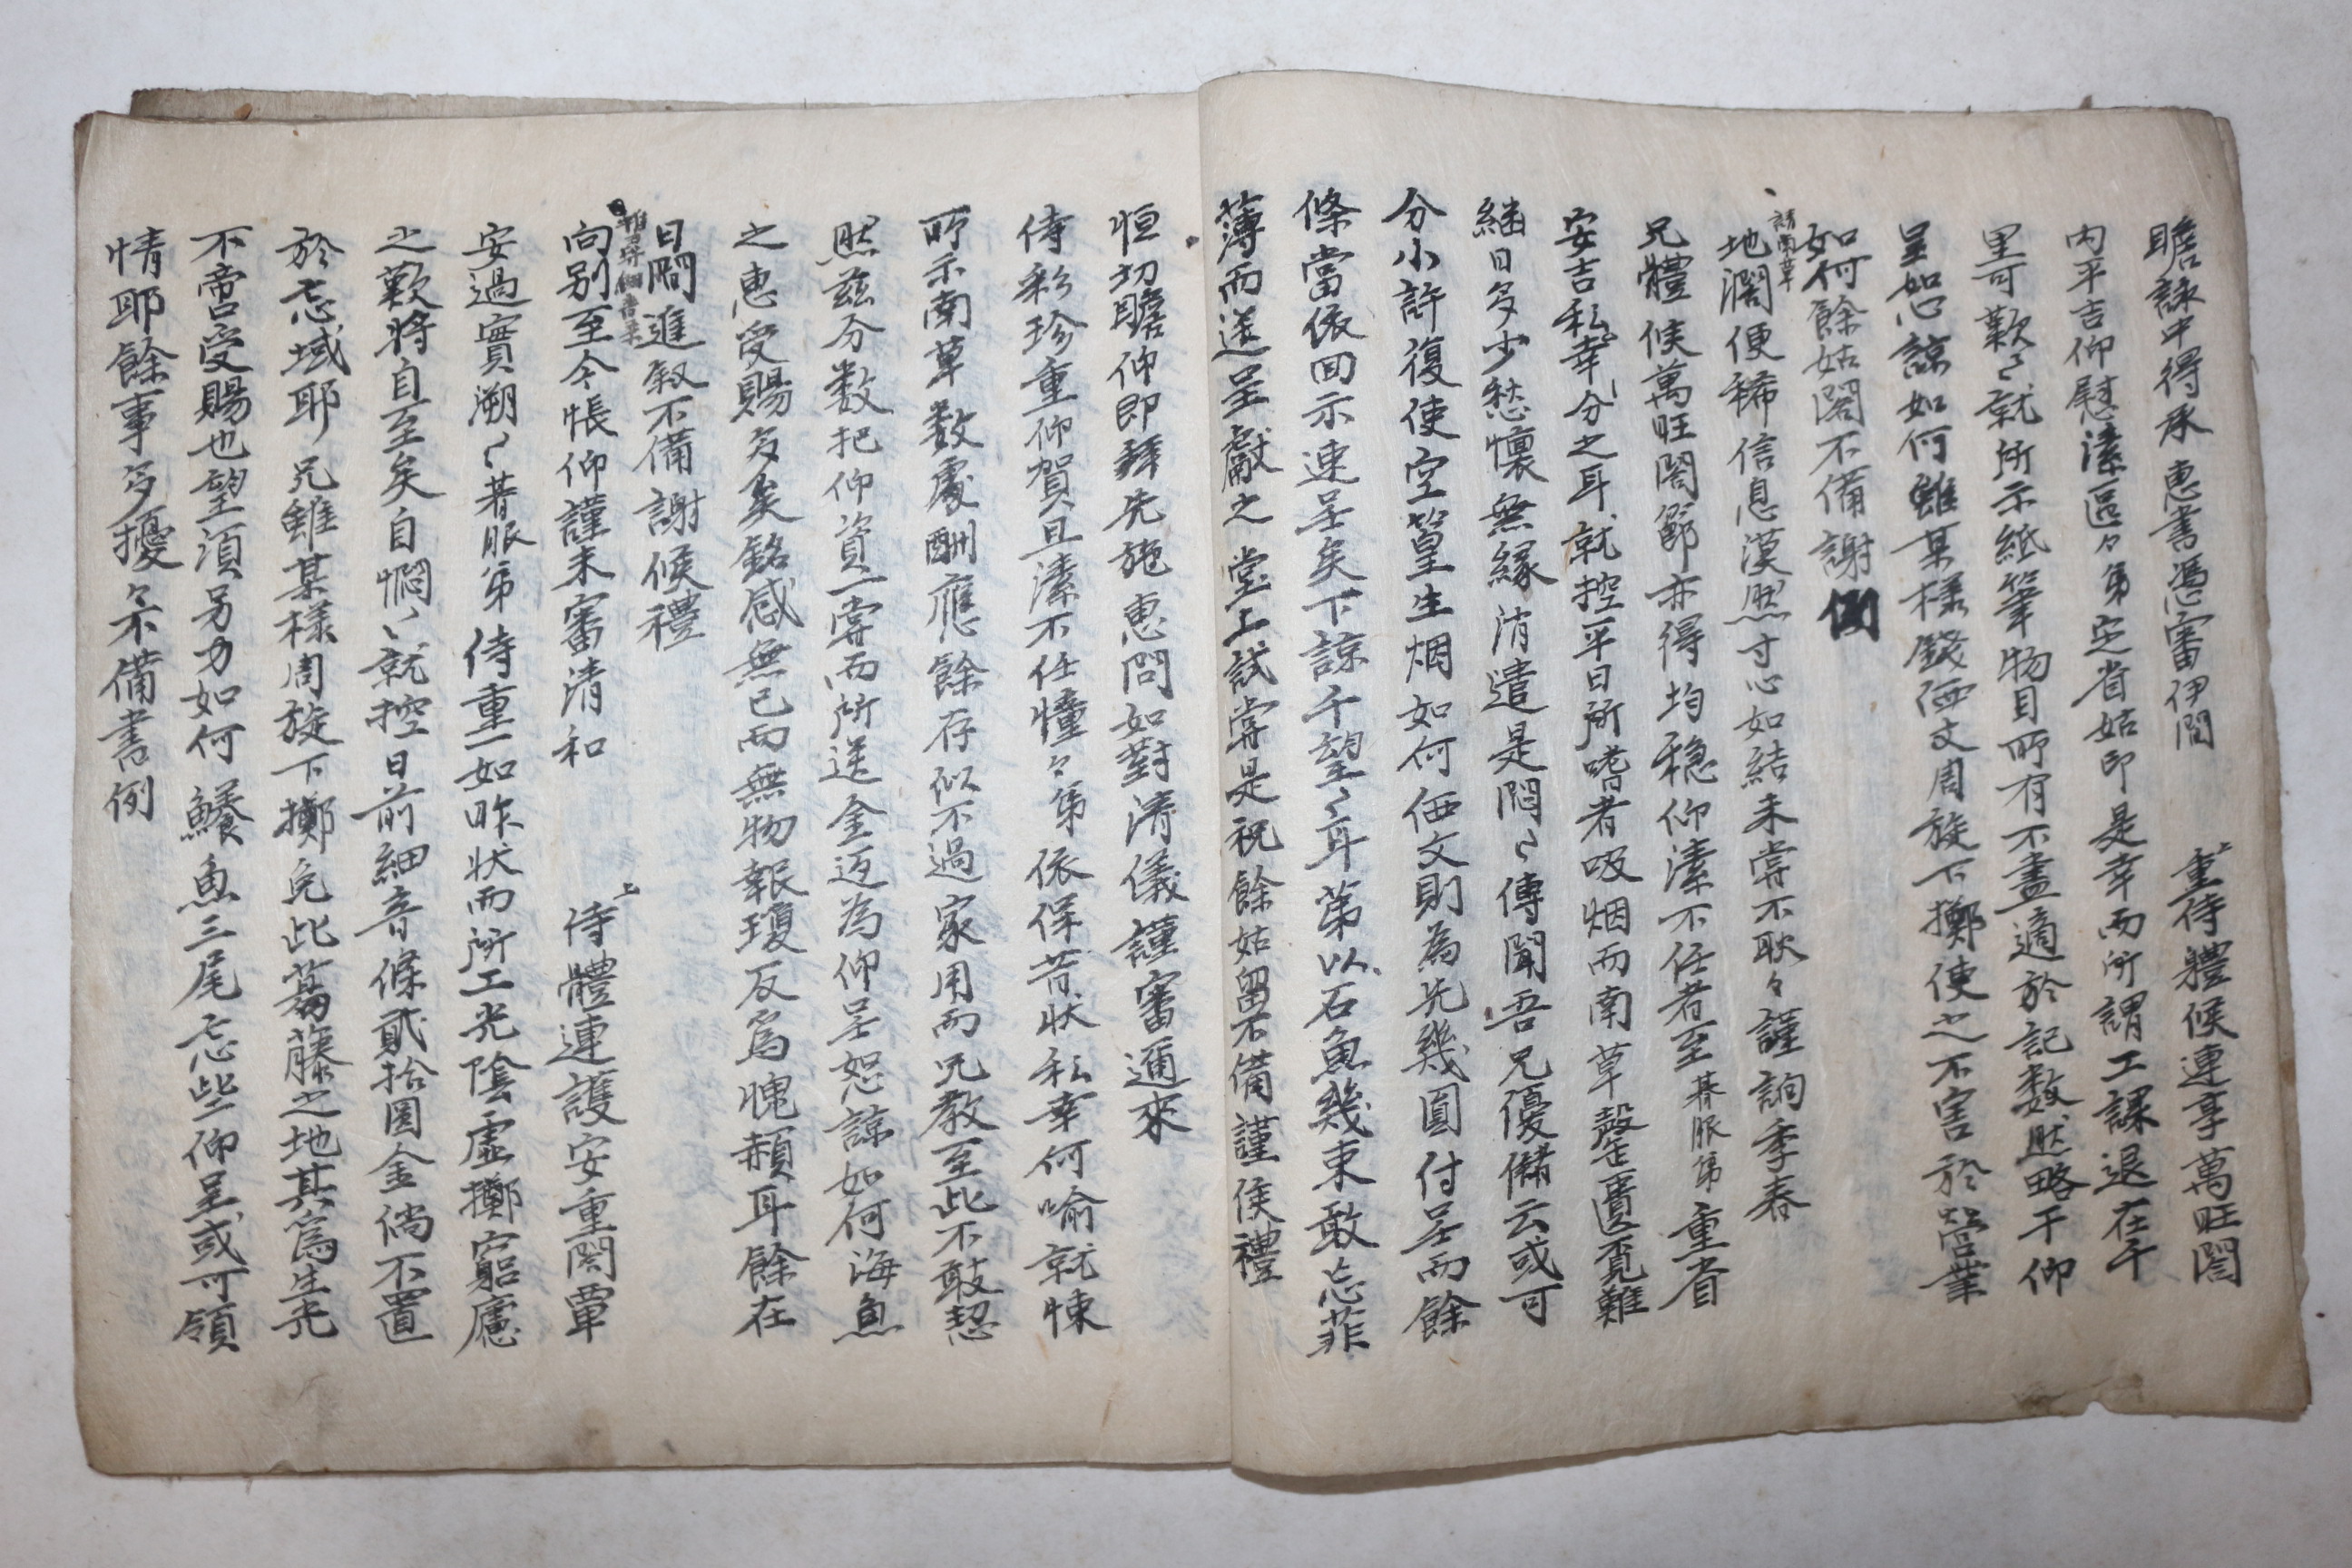 瞻詠中得承 惠書憑審伊間 重侍體候連享萬旺閤
內平吉仰慰溱區々弟定省姑印是幸而所謂工課退在千
里可歎〻就所示紙筆物目所有不盡適於記数然略干仰
呈如心諒如何雖某樣錢価文周旋下擲使之不害於營業
如何餘姑閣不備謝例
請南草
地濶便稀信息漠然寸心如結未嘗不耿々謹詢季春
兄體候萬旺閤節亦得均穩仰溱不任者至朞服弟重省
安吉私幸分之耳就控平日所嗜者吸烟而南草罄匱覓難
繼日多少愁懷無緣消遣是悶〻傳聞吾兄優儲云或可
分小許復使空篁生烟如何価文則為先幾圓付呈而餘
條當依回示速呈矣下諒千望〻耳第以石魚幾束敢忘菲
薄而送呈獻之 堂上試嘗是祝餘姑留不備謹候禮
恒切瞻仰即拜先施 惠問如對淸儀謹審邇來
侍彩珍重仰賀且溱不任憧々弟依保昔狀私幸何喻就悚
所示南草数處酬應餘存似不過家用而兄教至此不敢恝
然茲分数把仰資一嘗而所送金返為仰呈恕諒如何海魚
之惠受賜多矣銘感無已而無物報瓊反爲愧赧耳餘在
日間進敍不備謝候禮
向別至今悵仰謹未審清和 侍體連護安重閤覃
安過實溯〻朞服弟 侍重一如昨狀而所工光陰虛擲窮廬
之歎將自至矣自憫〻就控日前細音條貳拾圓金倘不置
於忘域耶 兄雖某樣周旋下擲免此葛藤之地其爲生光
不啻受賜也望須另力如何 鱶魚三尾忘些仰呈或可領
情耶餘事多擾々不備書例